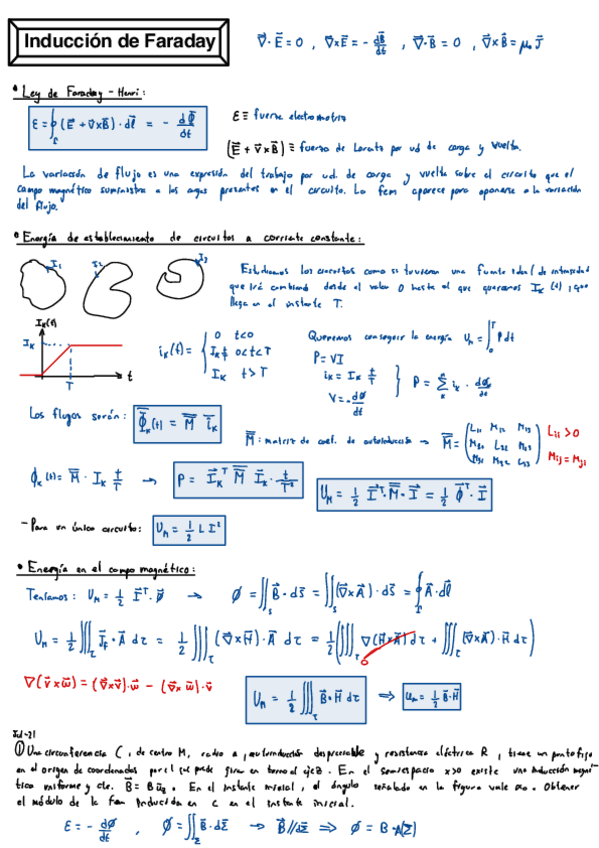 Inducción de Faraday
∇·E⃗ = 0 , ∇×E⃗ = - dB⃗/dt , ∇·B⃗ = 0 , ∇×B⃗ = μ₀ J⃗
• Ley de Faraday - Henri:
ε = ∮(E⃗ + v⃗×B⃗)·dl⃗ = - dΦ/dt
ε ≡ fuerza electromotriz
(E⃗ + v⃗×B⃗) ≡ fuerza de Lorentz por ud de carga y vuelta.
La variación de flujo es una expresión del trabajo por ud. de carga y vuelta sobre el circuito que el
campo magnético suministra a las cargas presentes en el circuito. La fem aparece para oponerse a la variación
del flujo.
• Energía de establecimiento de circuitos a corriente constante:
I₁ I₂ I₃
Estudiamos los circuitos como si tuvieran una fuente ideal de intensidad
que irá cambiando desde el valor 0 hasta el que queramos I_K (t) , que
llega en el instante T.
I_K(t)
I_K
T t
i_K(t) = { 0 t<0
I_K t/T 0<t<T
I_K t>T
Queremos conseguir la energía U_M = ∫₀ᵀ P dt
P = VI
i_K = I_K t/T
V = - dΦ/dt
P = Σ i_K · dΦ_K/dt
Los flujos serán: Φ_K(t) = M i_K
M : matriz de coef. de autoinducción → M = (L₁₁ M₁₂ M₁₃
M₂₁ L₂₂ M₂₃
M₃₁ M₃₂ L₃₃)
L_ii > 0
M_ij = M_ji
ϕ_K(t) = M · I_K t/T → P = I⃗_K^T M I⃗_K · t/T²
U_M = 1/2 I⃗^T · M · I⃗ = 1/2 Φ⃗^T · I⃗
- Para un único circuito: U_M = 1/2 L I²
• Energía en el campo magnético:
Teníamos: U_M = 1/2 I⃗^T · Φ → ϕ = ∬_S B⃗·dS⃗ = ∬_S (∇×A⃗)·dS⃗ = ∮_Γ A⃗·dl⃗
U_M = 1/2 ∭_τ J⃗_f · A⃗ dτ = 1/2 ∭_τ (∇×H⃗)·A⃗ dτ = 1/2 (∭_τ ∇(H⃗×A⃗) dτ + ∭_τ (∇×A⃗)·H⃗ dτ)
0
∇(v⃗×w⃗) = (∇×v⃗)·w⃗ - (∇×w⃗)·v⃗
U_M = 1/2 ∭_τ B⃗·H⃗ dτ ⇒ u_M = 1/2 B⃗·H⃗
Jul-21
① Una circunferencia C, de centro M, radio a, autoinducción despreciable y resistencia eléctrica R, tiene un punto fijo
en el origen de coordenadas por el que puede girar en torno al eje z. En el semiespacio x>0 existe una inducción magné-
tico uniforme y cte. B⃗ = B u⃗_z. En el instante inicial, el ángulo señalado en la figura vale α₀. Obtener
el módulo de la fem inducida en C en el instante inicial.
ε = - dϕ/dt , ϕ = ∬_Σ B⃗·dΣ⃗ → B⃗ // dΣ⃗ ⇒ ϕ = B·A(Σ)